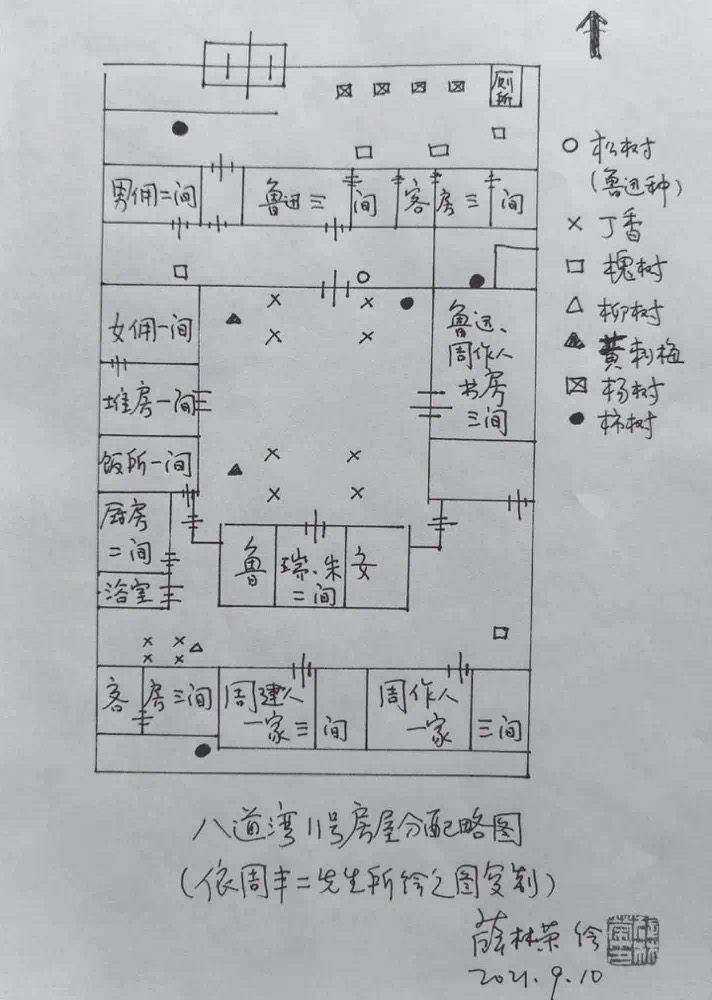 厕所
松树
(鲁迅种)
丁香
槐树
柳树
黄刺梅
杨树
柿树
男佣二间
鲁迅三间
客房三间
女佣一间
堆房一间
饭所一间
厨房
二间
浴室
鲁迅、
周作人
书房
三间
鲁
瑞、朱
二间
安
客房三间
周建人
一家三间
周作人
一家三间
八道湾11号房屋分配略图
(依周丰二先生所绘之图复制)
薛林荣 绘
2021.9.10